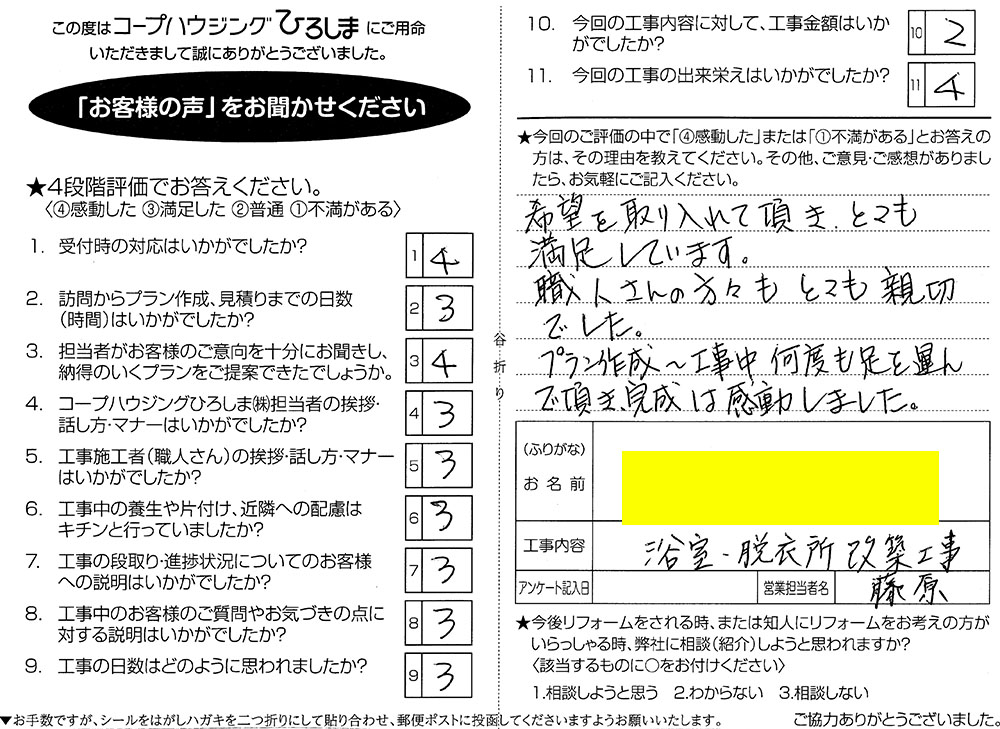 この度はコープハウジングひろしまにご用命
いただきまして誠にありがとうございました。
「お客様の声」をお聞かせください
★4段階評価でお答えください。
〈④感動した ③満足した ②普通 ①不満がある〉
1. 受付時の対応はいかがでしたか? 1 4
2. 訪問からプラン作成、見積りまでの日数
(時間)はいかがでしたか? 2 3
3. 担当者がお客様のご意向を十分にお聞きし、
納得のいくプランをご提案できたでしょうか。 3 4
4. コープハウジングひろしま㈱担当者の挨拶・
話し方・マナーはいかがでしたか? 4 3
5. 工事施工者(職人さん)の挨拶・話し方・マナー
はいかがでしたか? 5 3
6. 工事中の養生や片付け、近隣への配慮は
キチンと行っていましたか? 6 3
7. 工事の段取り・進捗状況についてのお客様
への説明はいかがでしたか? 7 3
8. 工事中のお客様のご質問やお気づきの点に
対する説明はいかがでしたか? 8 3
9. 工事の日数はどのように思われましたか? 9 3
▼お手数ですが、シールをはがしハガキを二つ折りにして貼り合わせ、郵便ポストに投函してくださいますようお願いいたします。
谷折り
10. 今回の工事内容に対して、工事金額はいか
がでしたか? 10 2
11. 今回の工事の出来栄えはいかがでしたか? 11 4
★今回のご評価の中で「④感動した」または「①不満がある」とお答えの
方は、その理由を教えてください。その他、ご意見・ご感想がありまし
たら、お気軽にご記入ください。
希望を取り入れて頂き、とても
満足しています。
職人さんの方々もとても親切
でした。
プラン作成～工事中何度も足を運ん
で頂き、完成は感動しました。
(ふりがな)
お名前
工事内容 浴室・脱衣所改築工事
アンケート記入日 営業担当者名 藤原
★今後リフォームをされる時、または知人にリフォームをお考えの方が
いらっしゃる時、弊社に相談(紹介)しようと思われますか?
〈該当するものに○をお付けください〉
1.相談しようと思う 2.わからない 3.相談しない
ご協力ありがとうございました。